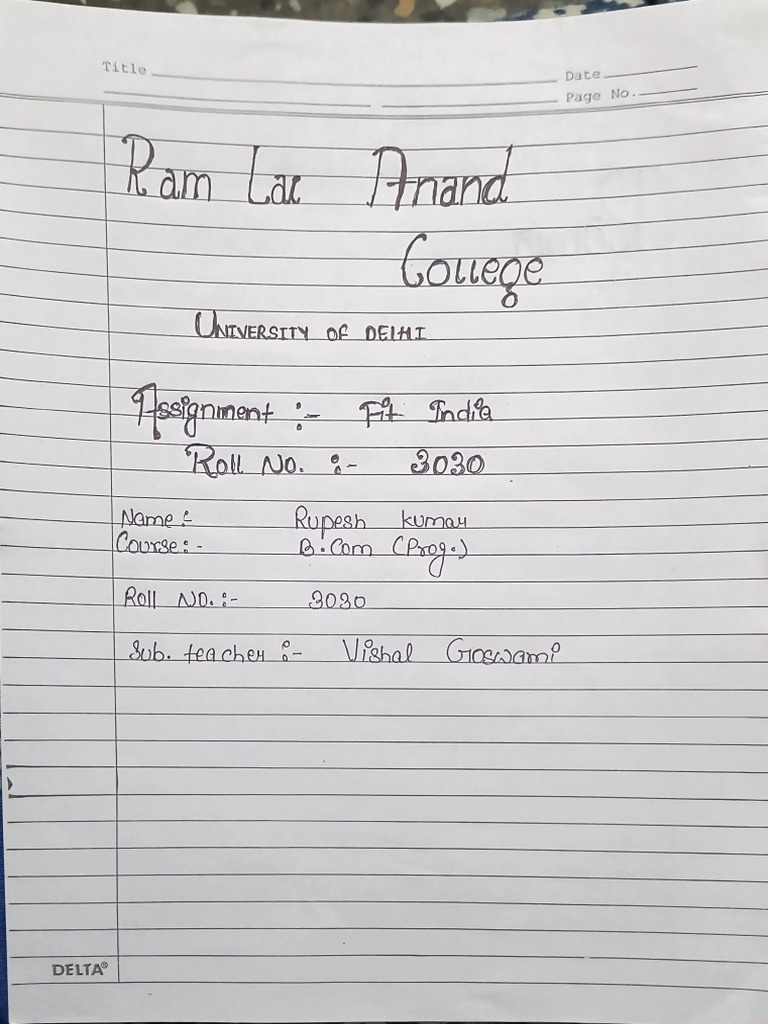 Title
Date
Page No.
Ram Lal Anand
College
UNIVERSITY OF DELHI
Assignment :- Fit India
Roll No. :- 3030
Name :- Rupesh kumar
Course :- B.Com (Prog.)
Roll NO. :- 3030
Sub. teacher :- Vishal Goswami
DELTA®